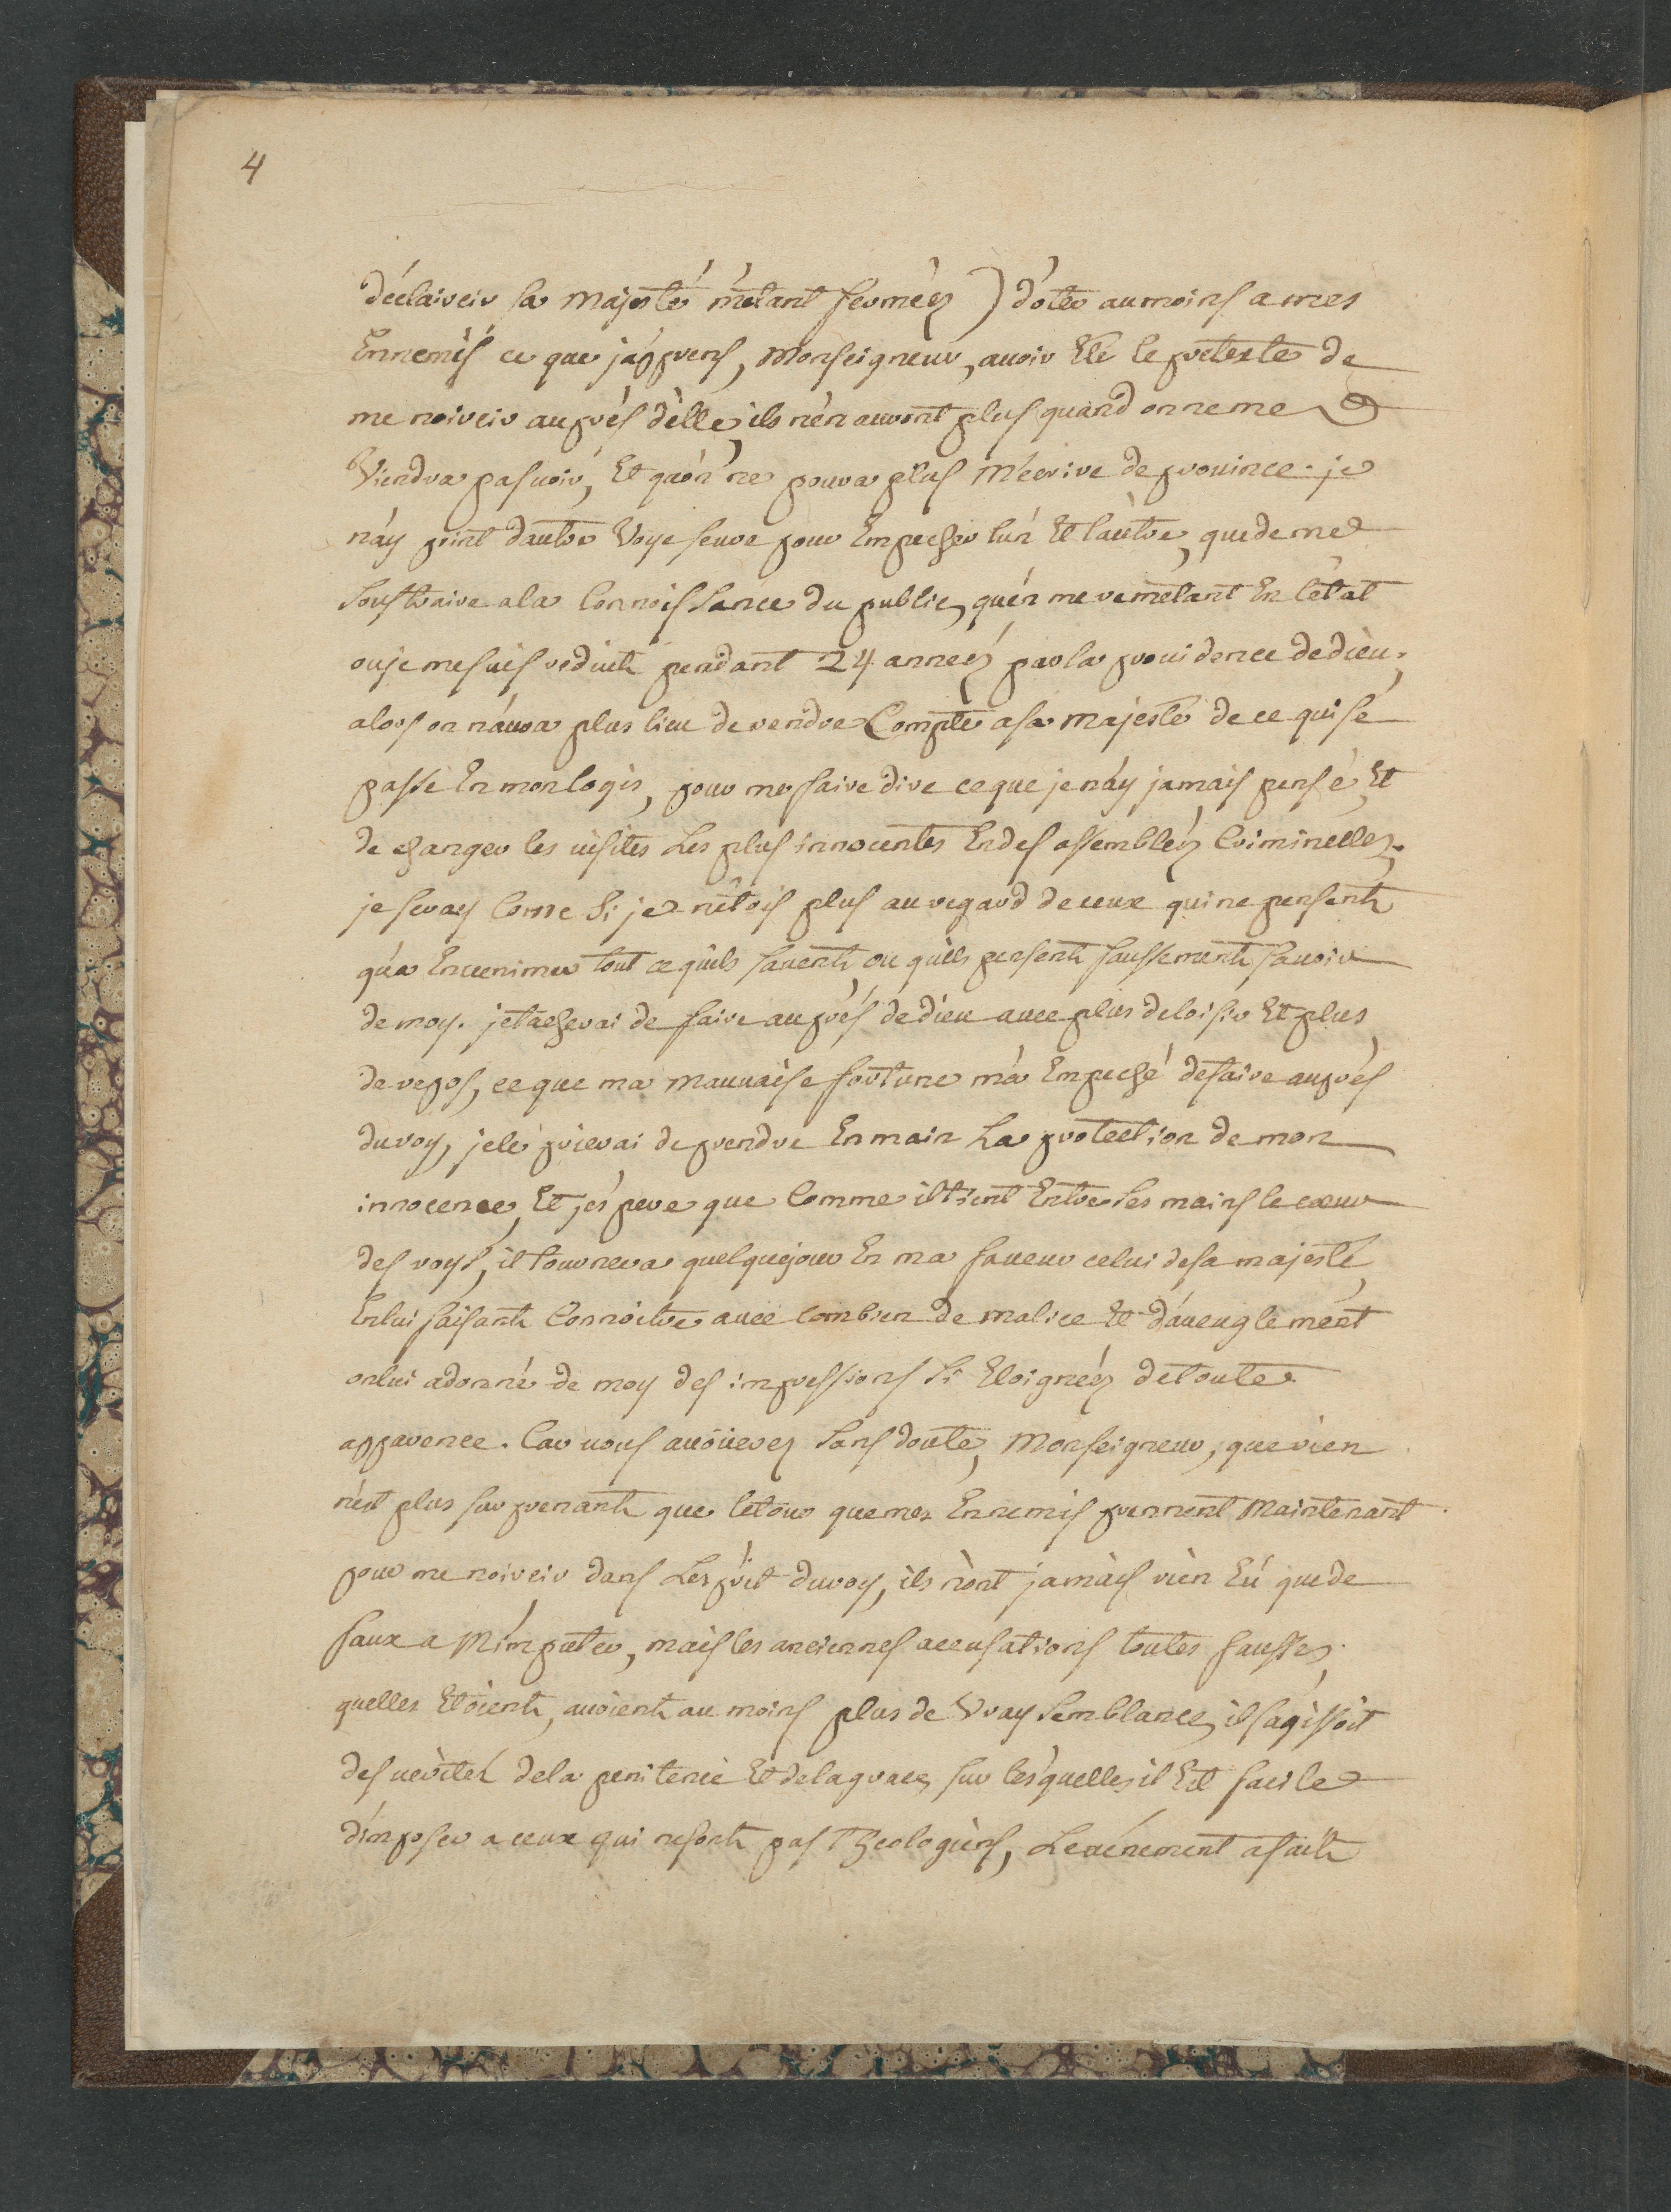 4
déclaireir sa majesté m'étant fermées) d'óter au moins a mes
Ennemis ce que j'apprens, Monseigneur, auoir Eté le preteste de
me noircir auprés d'elle, ils n'en auront plus quand on ne me
Viendra pas uoir, Et qu'on ne poura plus m'écrire de prouince. je
n'ay point d'autre Voye seure pour Empecher l'un Et l'autre, que de me
soustraire a la Connoissance du public, qu'en me remétant En l'état
ou je me suis reduit pendant 24 années par la prouidence de dieu,
alors on n'aura plus lieu de rendre Compte a sa majesté de ce qui sé
passe En mon logis, pour me faire dire ce que je n'ay jamais pensé, Et
de changer les uisites Les plus innocentes En des assemblées Criminelles.
je seray Come Si je n'étois plus au regard de ceux qui ne pensent
qu'a Enuenimer tout ce qu'ils sauent, ou qu'ils pensent faussement sauoir
de moy. je tacherai de faire auprés de dieu auec plus de loisir Et plus
de repos, ce que ma mauuaise fortune m'a Empeché de faire auprés
du roy, je le prierai de prendre En main La protection de mon
innocence, Et j'éspere que Comme il tient Entre Ses mains le coeur
des roys, il tournera quelque jour En ma faueur celui de sa majesté,
En lui faisant Connoitre auec combien de malice Et d'aueuglement
on lui a donné de moy des impressions Si Eloignées de toute
apparence. Car uous auöuerez Sans doute, Monseigneur, que rien
n'est plus surprenant que le tour que mes Ennemis prennent Maintenant
pour me noircir dans L'esprit du roy, ils n'ont jamais rien Eú que de
faux a M'imputer, mais les anciennes accusations toutes fausses
quelles Etoient, auoient au moins plus de Vray Semblance, il s'agissoit
des uerites de la penitence Et de la grace, sur les quelles il Est facile
d'imposer a ceux qui ne sont pas Theologiens, L'euénement a fait